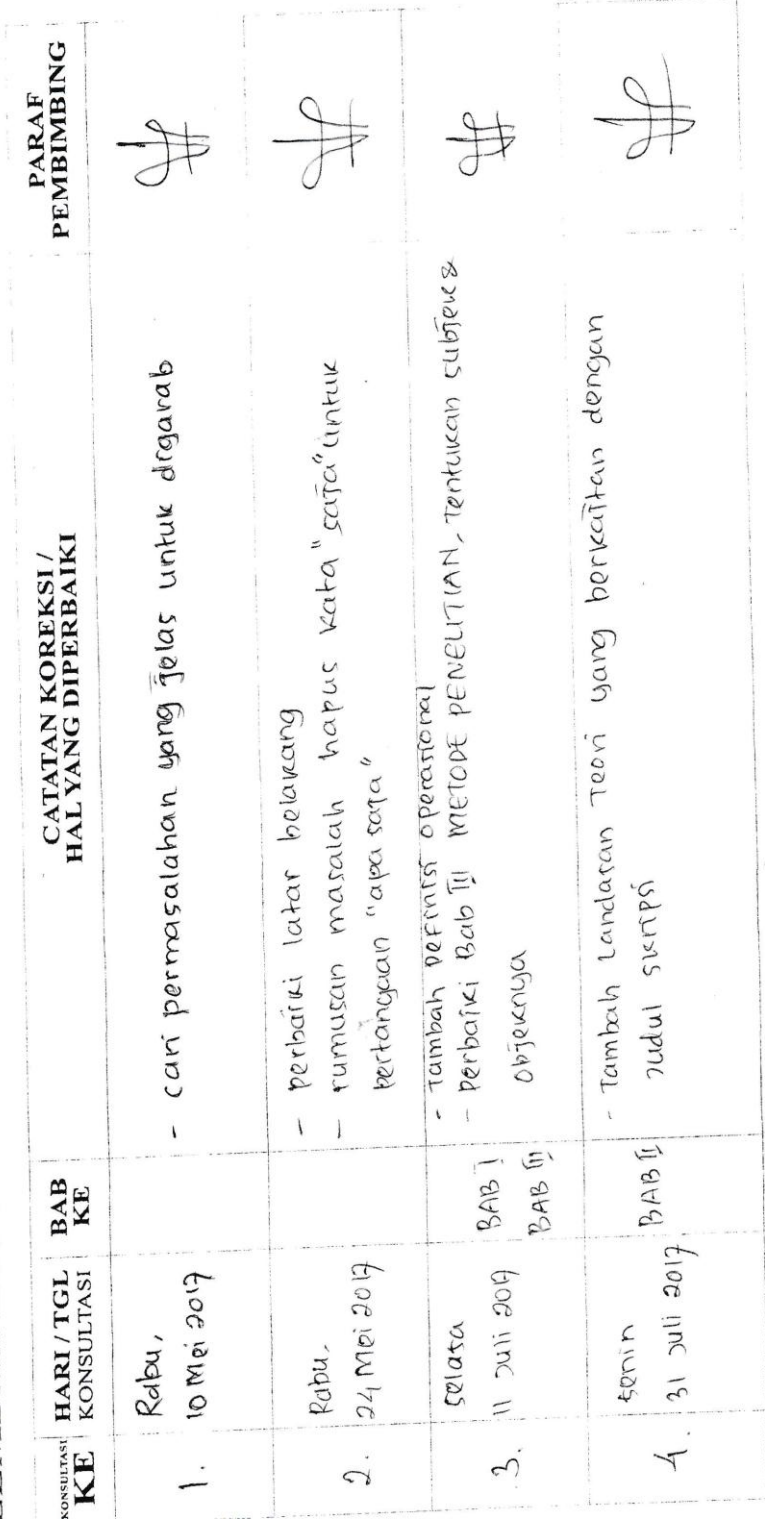 KONSULTASI KE
HARI / TGL
KONSULTASI
BAB
KE
CATATAN KOREKSI /
HAL YANG DIPERBAIKI
PARAF
PEMBIMBING
1.
Rabu,
10 Mei 2017
- cari permasalahan yang jelas untuk digarab
2.
Rabu,
24 Mei 2017
- perbaiki latar belakang
- rumusan masalah hapus kata "saja" untuk
pertanyaan "apa saja"
3.
Selasa
11 Juli 2017
BAB I
BAB III
- Tambah Definisi Operasional
- Perbaiki Bab III METODE PENELITIAN, Tentukan subjek &
objeknya
4.
Senin
31 Juli 2017
BAB II
- Tambah Landasan Teori yang berkaitan dengan
Judul skripsi